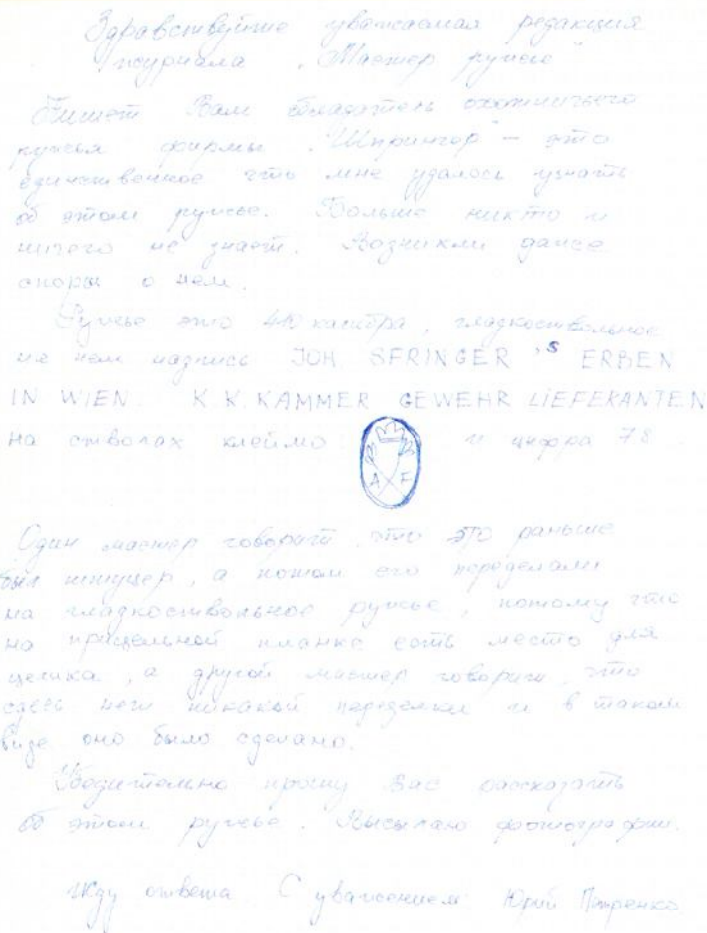 Здравствуйте уважаемая редакция
журнала „Мастер ружье"
Пишет Вам обладатель охотничьего
ружья фирмы „Шпрингер" – это
единственное что мне удалось узнать
об этом ружье. Больше никто и
ничего не знает. Возникли даже
споры о нем.
Ружье это 410 калибра, гладкоствольное
на нем надпись JOH SPRINGER 'S ERBEN
IN WIEN. K.K. KAMMER GEWEHR LIEFERANTEN
на стволах клеймо A F и цифра 78
Один мастер говорит, что это раньше
был штуцер, а потом его переделали
на гладкоствольное ружье, потому что
на прицельной планке есть место для
целика, а другой мастер говорит, что
здесь нет никакой переделки и в таком
виде оно было сделано.
Убедительно прошу Вас рассказать
об этом ружье. Высылаю фотографии.
Жду ответа С уважением Юрий Петренко